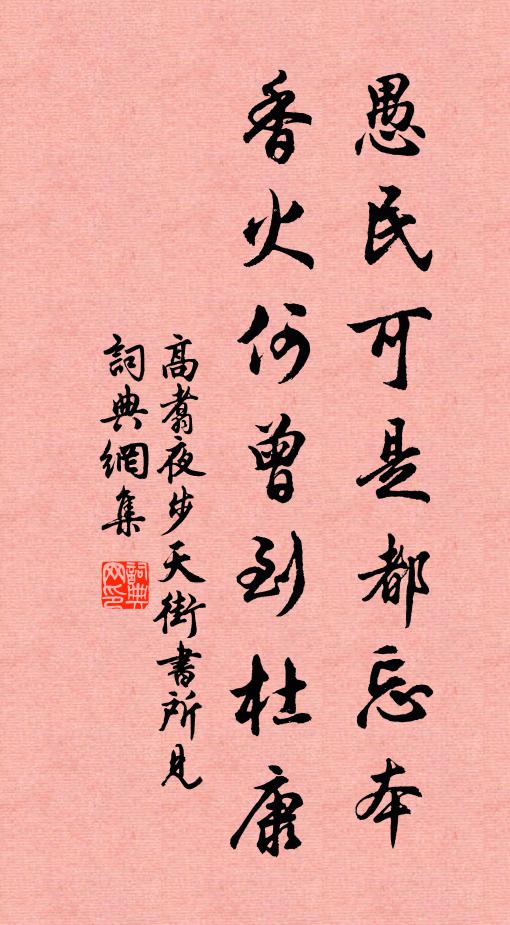 愚民可是都忘本
香火何曾到杜康
高翥夜步天街書所見
詞典網集
詞典網印